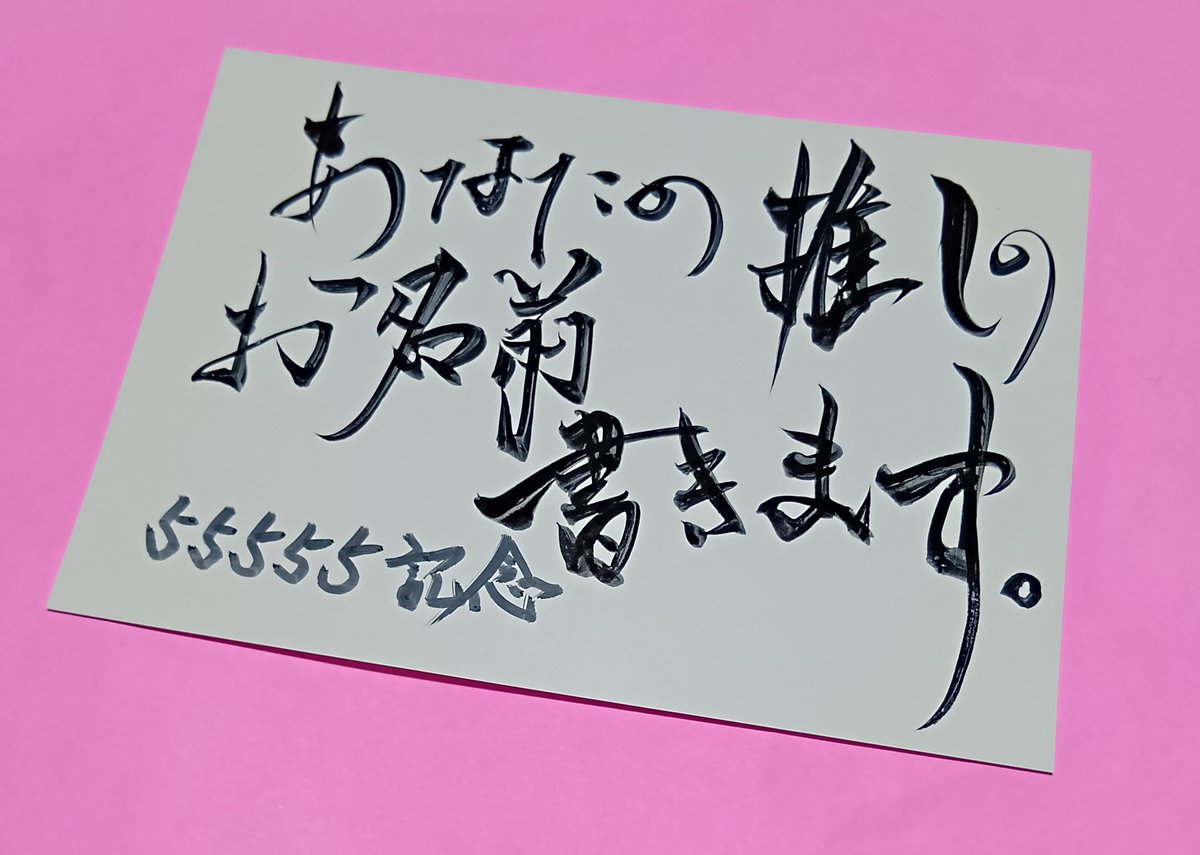 あなたの推しの
お名前
書きます。
55555記念